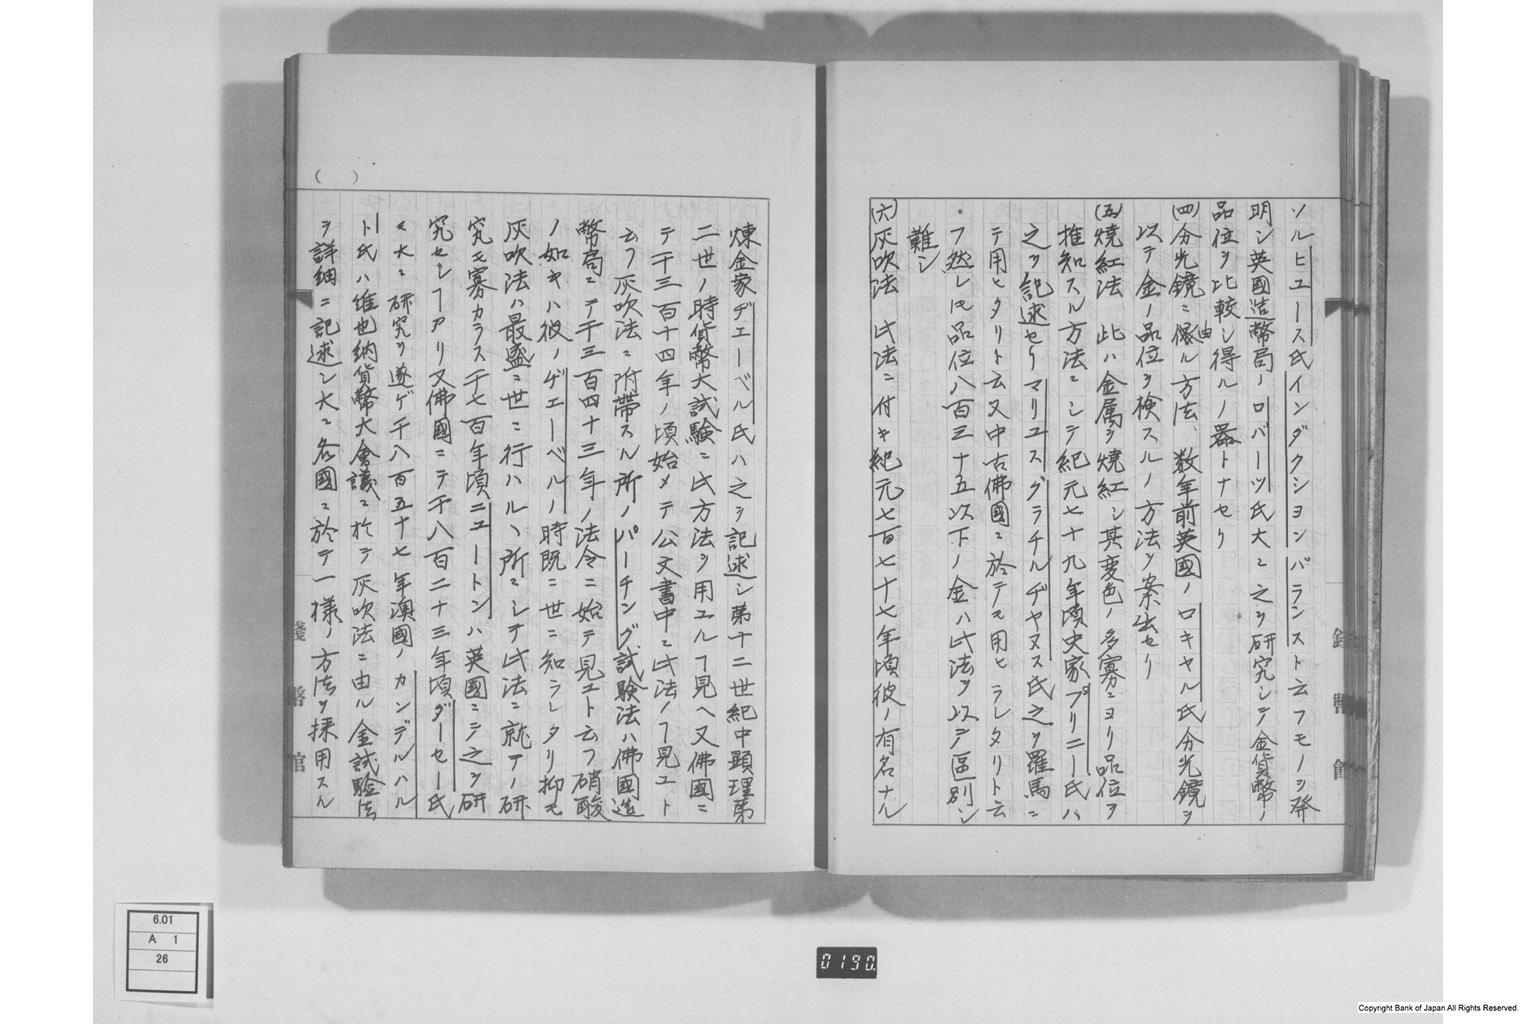 ソルヒユース氏インダクシヨンバランスト云フモノヲ発
明シ英國造幣局ノロバーツ氏大ニ之ヲ研究シテ金貨幣ノ
品位ヲ比較シ得ルノ器トナセリ
(四)分光鏡ニ由ル方法、数年前英國ノロキヤル氏分光鏡ヲ
以テ金ノ品位ヲ検スルノ方法ヲ案出セリ
(五)焼紅法 此ハ金属ヲ焼紅シ其変色ノ多寡ニヨリ品位ヲ
推知スル方法ニシテ紀元七十九年頃史家プリニー氏ハ
之ヲ記述セリマリユスグラチルヂヤヌス氏之ヲ羅馬ニ
テ用ヒタリト云又中古佛國ニ於テモ用ヒラレタリト云
フ然レ𪜈品位八百三十五以下ノ金ハ此法ヲ以テ區別シ
難シ
(六)灰吹法 此法ニ付キ紀元七百七十七年頃彼ノ有名ナル
( )
煉金家ヂエーベル氏ハ之ヲ記述シ第十二世紀中顕理第
二世ノ時貨幣大試験ニ此方法ヲ用ユルヿ見ヘ又佛國ニ
テ千三百十四年ノ頃始メテ公文書中ニ此法ノヿ見ユト
云フ灰吹法ニ附帯スル所ノパーチング試験法ハ佛國造
幣局ニテ千三百四十三年ノ法令ニ始テ見ユト云フ硝酸
ノ如キハ彼ノゲエーベルノ時既ニ世ニ知ラレタリ抑モ
灰吹法ハ最盛ニ世ニ行ハルヽ所ニシテ此法ニ就テノ研
究モ寡カラス千七百年頃ニユートンハ英國ニテ之ヲ研
究セシヿアリ又佛國ニテ千八百二十三年頃ダーセー氏
大ニ研究ヲ遂ゲ千八百五十七年澳國ノカンデルハル
ト氏ハ維也納貨幣大會議ニ於テ灰吹法ニ由ル金試験法
ヲ詳細ニ記述シ大ニ各國ニ於テ一様ノ方法ヲ採用スル
6.01
A 1
26
0190.
Copyright Bank of Japan All Rights Reserved.